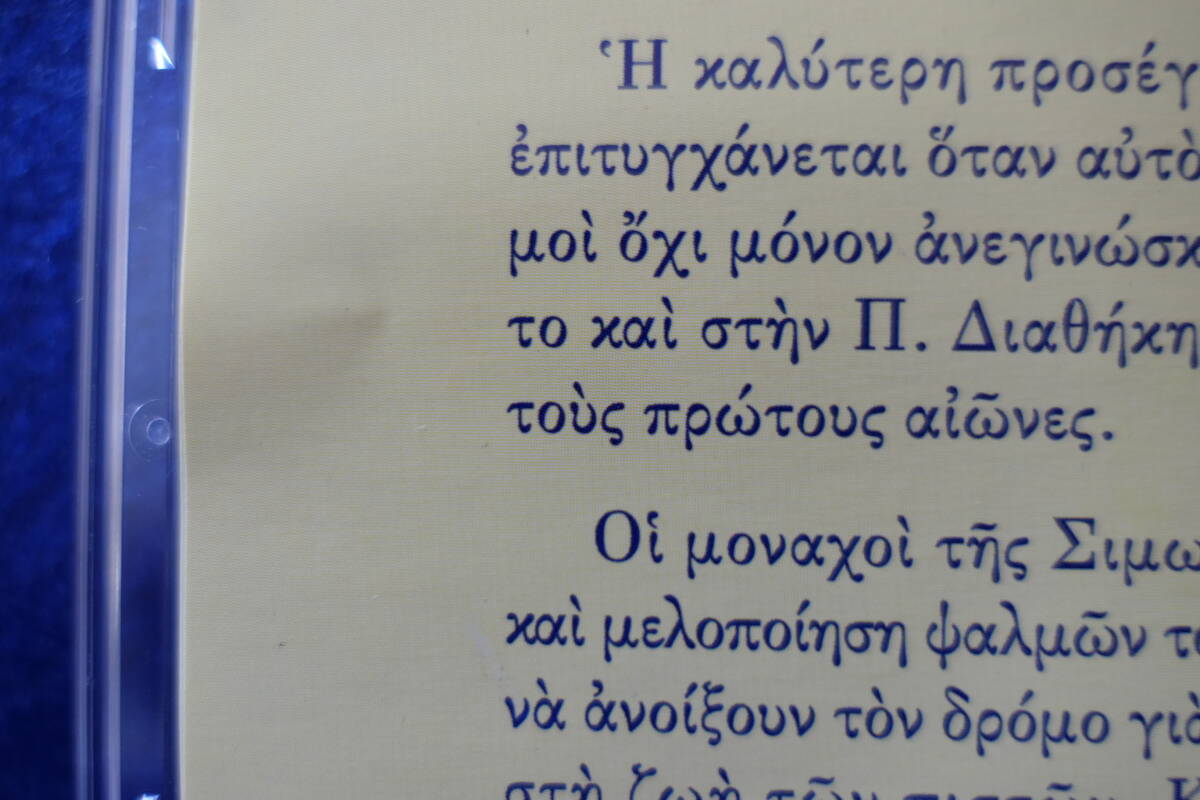 Ἡ καλύτερη προσέγ
ἐπιτυγχάνεται ὅταν αὐτὸ
μοὶ ὄχι μόνον ἀνεγινώσκ
το καὶ στὴν Π. Διαθήκη
τοὺς πρώτους αἰῶνες.
Οἱ μοναχοὶ τῆς Σιμω
καὶ μελοποίηση ψαλμῶν τ
νὰ ἀνοίξουν τὸν δρόμο γιὰ
στὴ ζωὴ τῶν πιστῶν. Κ